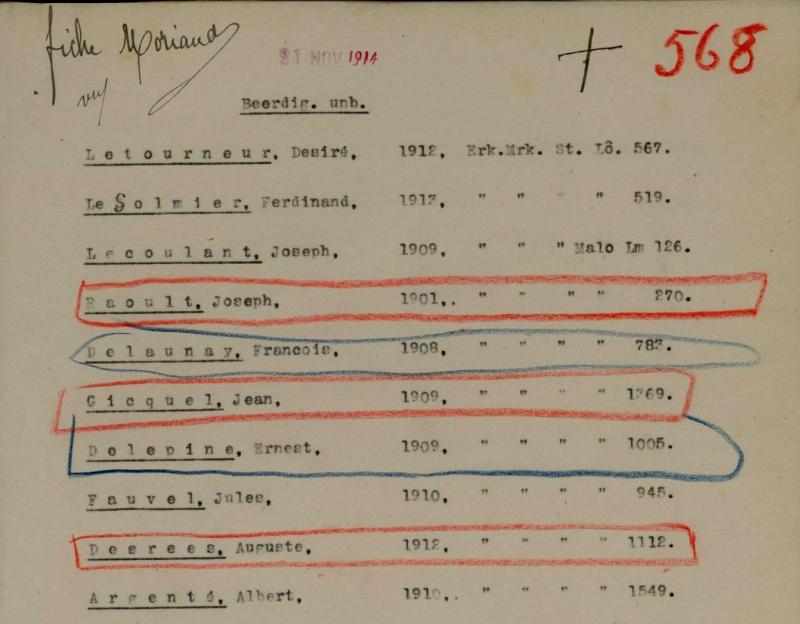 fiche Moriaud
21 NOV 1914
568
Beerdig. unb.
Letourneur, Desiré, 1912, Erk.Mrk. St. Lô. 567.
Le Solmier, Ferdinand, 1913, " " " " 519.
Lecoulant, Joseph, 1909, " " " Malo Lm 126.
Raoult, Joseph, 1901,. " " " " 270.
Delaunay, Francois, 1908, " " " " 783.
Gicquel, Jean, 1909, " " " " 1369.
Delepine, Ernest, 1909, " " " " 1005.
Fauvel, Jules, 1910, " " " " 945.
Desrees, Auguste, 1912, " " " " 1112.
Argenté, Albert, 1910,. " " " " 1549.